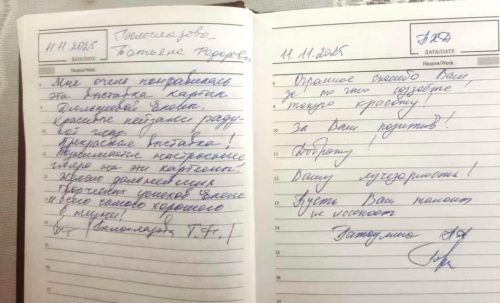 11.11.2025
Белоглазова
Татьяна Федоровна
ДАТА/DATE
Неделя/Week
Мне очень понравилась
эта выставка картин
Еленой.
Красивые пейзажи раду-
ют глаз.
Прекрасная выставка!
Поднимается настроение
глядя на эти картины.
Желаю дальнейших
творческих успехов Елене
и всего самого хорошего
в жизни!
/Белоглазова Т.Ф./
11.11.2025
ДАТА/DATE
Неделя/Week
Огромное спасибо Вам,
за то что создаёте
такую красоту!
За Ваш позитив!
Доброту!
Вашу лучезарность!
Пусть Ваш талант
не иссякнет